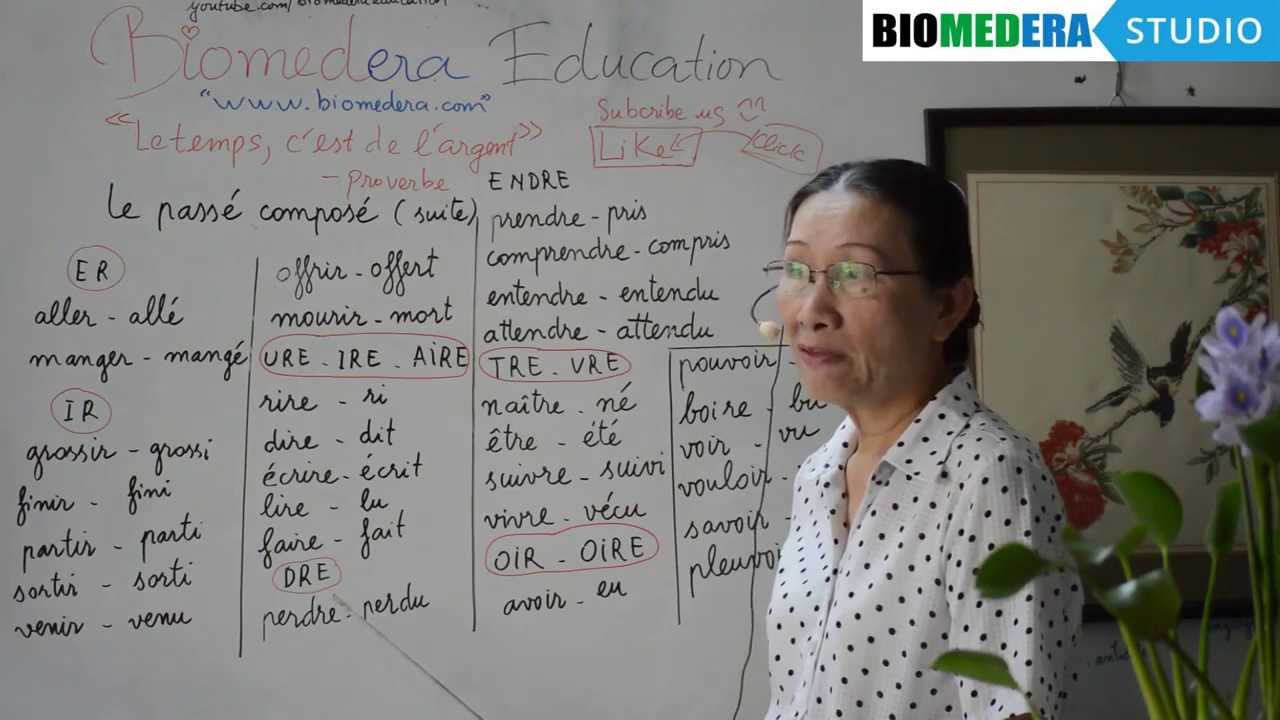 youtube.com/biomederaeducation
BIOMEDERA STUDIO
Biomedera Education
"www.biomedera.com"
Subcribe us
"Le temps, c'est de l'argent"
Like
Click
- Proverbe
Le passé composé (suite)
ER
aller - allé
manger - mangé
IR
grossir - grossi
finir - fini
partir - parti
sortir - sorti
venir - venu
offrir - offert
mourir - mort
URE - IRE - AIRE
rire - ri
dire - dit
écrire - écrit
lire - lu
faire - fait
DRE
perdre - perdu
ENDRE
prendre - pris
comprendre - compris
entendre - entendu
attendre - attendu
TRE - VRE
naître - né
être - été
suivre - suivi
vivre - vécu
OIR - OIRE
avoir - eu
pouvoir -
boire - bu
voir - vu
vouloir -
savoir -